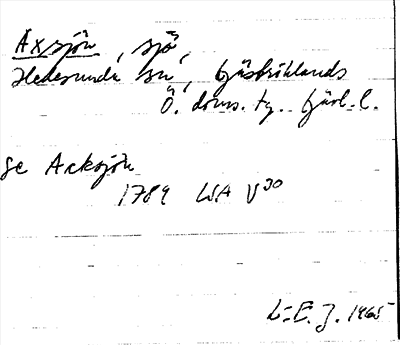 Axsjön, sjö,
Hedesunda sn, Gästriklands
Ö. doms. tg. Gävl. l.
se Acksjön
1789 LSA V30
L-E. J. 1965